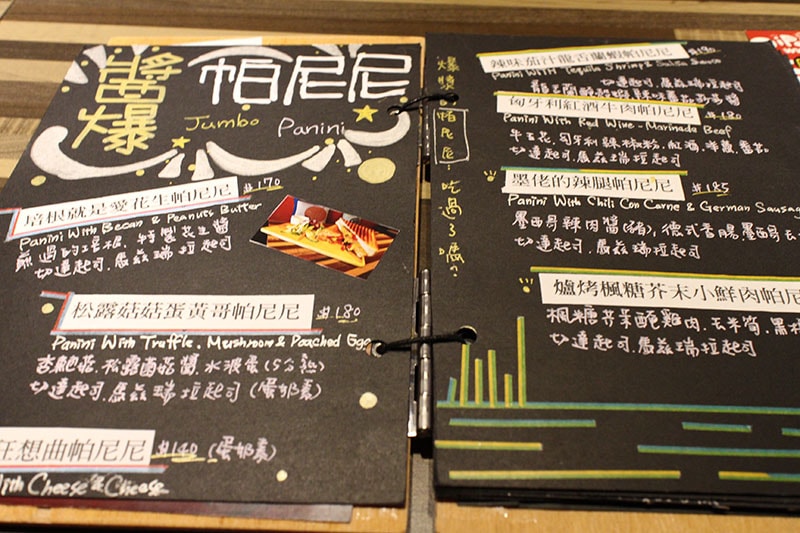 醬爆
帕尼尼
Jumbo Panini
培根就是愛花生帕尼尼 $170
Panini With Bacon & Peanuts Butter
煎過的培根、特製花生醬
切達起司、馬茲瑞拉起司
松露菇菇蛋黃哥帕尼尼 $180
Panini With Truffle、Mushroom & Poached Egg
杏鮑菇、松露菌菇醬、水波蛋(5分熟)
切達起司、馬茲瑞拉起司(蛋奶素)
狂想曲帕尼尼 $140 (蛋奶素)
With Cheese & Cheese
爆漿 帕尼尼、吃過了嗎？
辣味茄汁龍舌蘭蝦帕尼尼 $190
Panini With Tequila Shrimp & Salsa Sauce
切達起司、馬茲瑞拉起司
匈牙利紅酒牛肉帕尼尼 $180
Panini With Red Wine-Marinade Beef
切達起司、馬茲瑞拉起司
墨佬的辣腿帕尼尼 $185
Panini With Chili Con Carne & German Sausage
墨西哥辣肉醬(豬)、德式香腸、墨西哥
切達起司、馬茲瑞拉起司
爐烤楓糖芥末小鮮肉帕尼
楓糖芥末醃雞肉、玉米筍、黑橄
切達起司、馬茲瑞拉起司